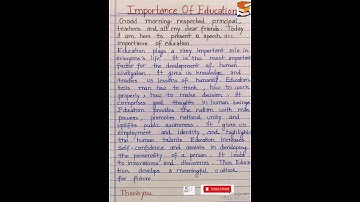 Importance Of Education
Good morning respected principal,
teachers and all my dear friends. Today
I am here to present a speech on
importance of education.
Education plays a very important role in
everyone's life. It is the most important
factor for the development of human
civilization. It gives us knowledge and
teaches us lessons of humanity. Education
tells man how to think, how to work
properly, how to make decision. It
comprises good thoughts in human beings.
Education provides the nation with man
powers, promotes national unity and
uplifts public awareness. It gives us
employment and identity and highlights
the human talents. Education increases
self-confidence and assists in developing
the personality of a person. It leads
to innovations and discoveries. Thus Edu-
cation develops a meaningful outlook
for future.
Thank you.
SUBSCRIBE